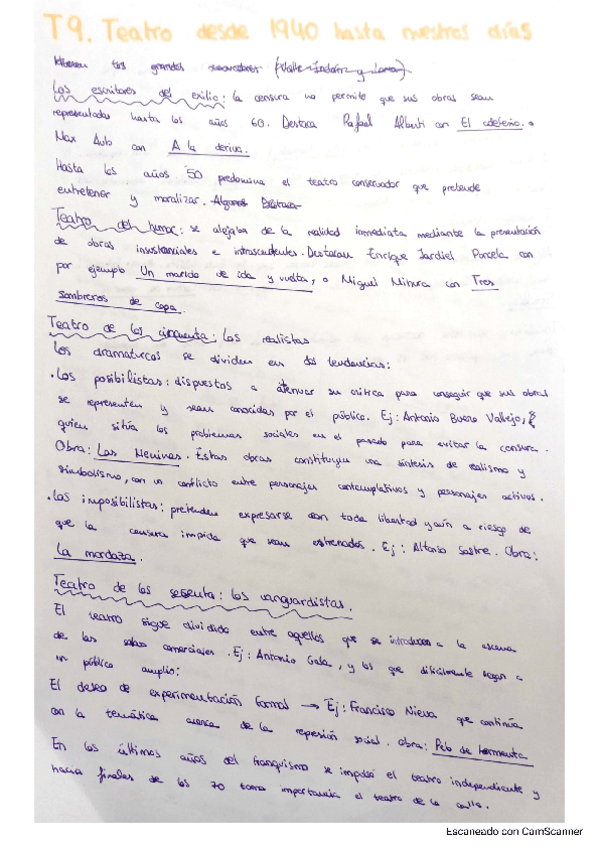 T9. Teatro desde 1940 hasta nuestros días
tres grandes renovadores (Valle-Inclán y Lorca)
Los escritores del exilio: la censura no permite que sus obras sean
representadas hasta los años 60. Destaca Rafael Alberti con El adefesio.
Max Aub con A la deriva.
Hasta los años 50 predomina el teatro conservador que pretende
entretener y moralizar. Algunos Destaca
Teatro del humor: se alejaba de la realidad inmediata mediante la presentación
de obras insustanciales e intrascendentes. Destacan Enrique Jardiel Porcela con
por ejemplo Un marido de ida y vuelta, o Miguel Mihura con Tres
sombreros de copa.
Teatro de los cincuenta: Los realistas
Los dramaturgos se dividen en dos tendencias:
·Los posibilistas: dispuestos a atenuar su crítica para conseguir que sus obras
se representen y sean conocidas por el público. Ej: Antonio Buero Vallejo,
quien sitúa los problemas sociales en el pasado para evitar la censura.
Obra: Las Meninas. Éstas obras constituyen una síntesis de realismo y
simbolismo, con un conflicto entre personajes contemplativos y personajes activos.
·Los imposibilistas: pretenden expresarse con toda libertad y aún a riesgo de
que la censura impida que sean estrenados. Ej: Alfonso Sastre. Obra:
La mordaza.
Teatro de los sesenta: los vanguardistas.
El teatro sigue dividido entre aquellos que se introducen a la escena
de las salas comerciales. Ej: Antonio Gala, y los que difícilmente llegan a
un público amplio:
El deseo de experimentación formal → Ej: Francisco Nieva que continúa
con la temática acerca de la represión social. Obra: Pelo de tormenta
En los últimos años del franquismo se impulsó el teatro independiente y
hacia finales de los 70 toma importancia el teatro de la calle.
Escaneado con CamScanner